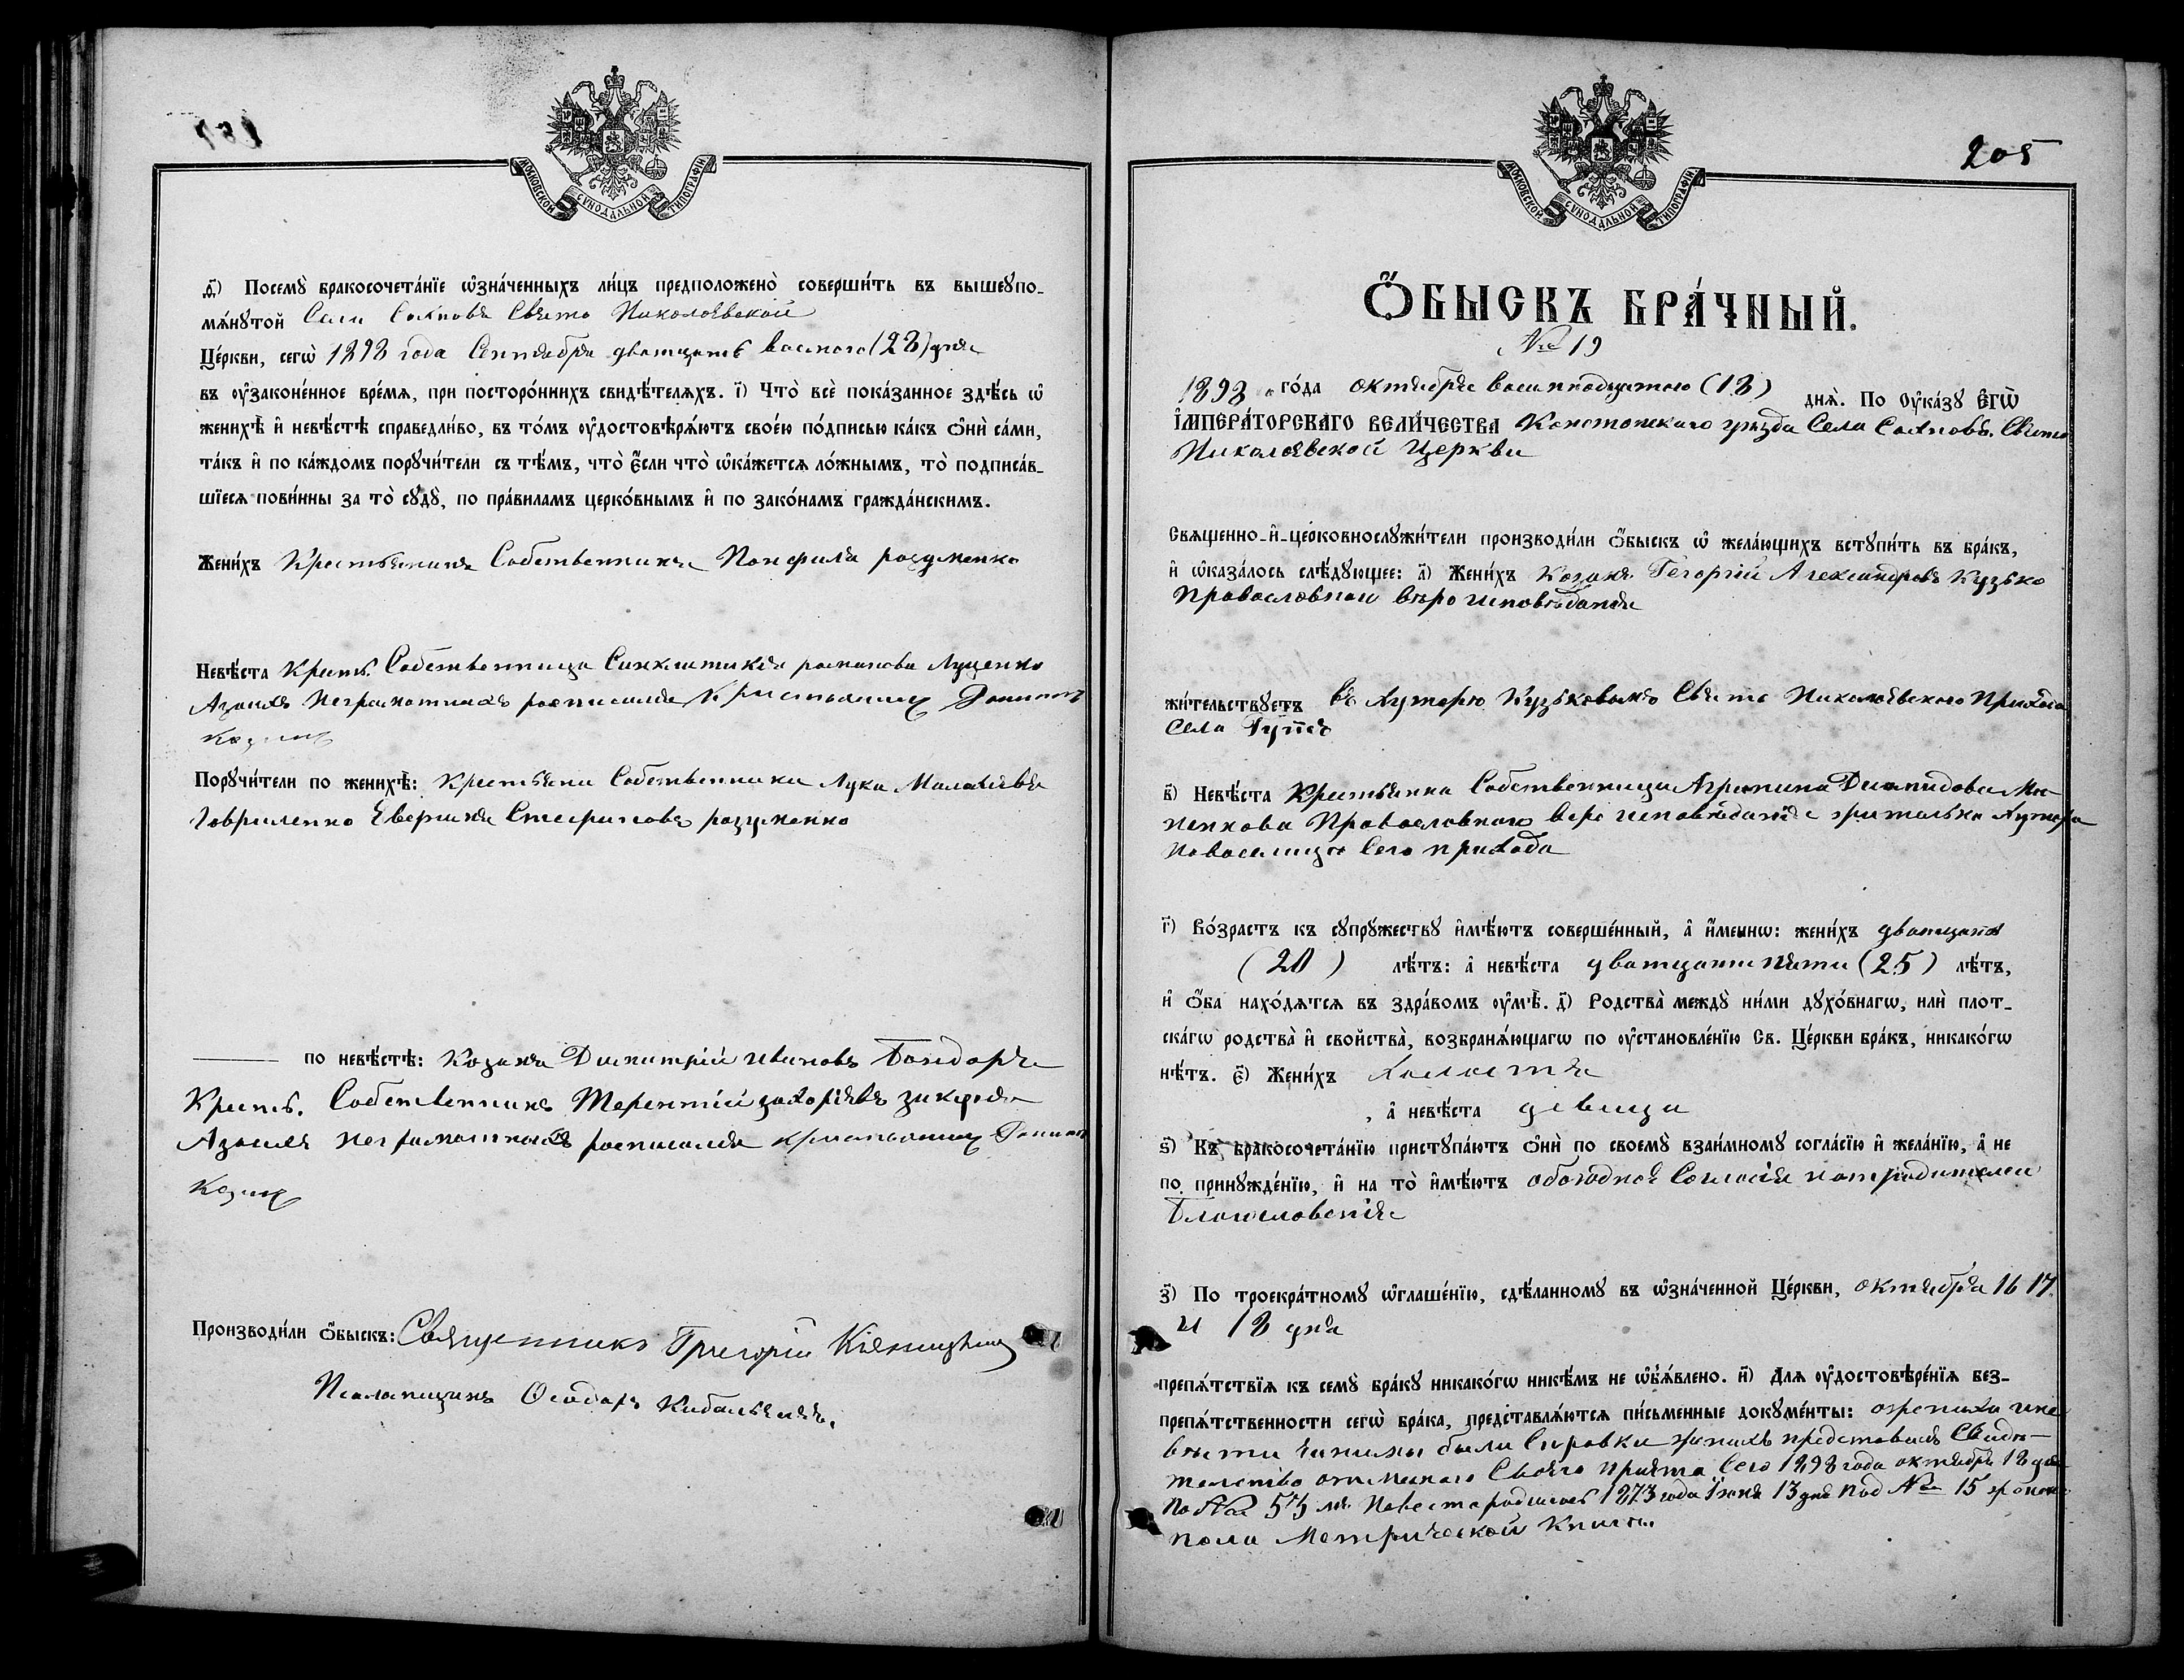 МОСКОВСКОЙ СѴНОДАЛЬНОЙ ТИПОГРАФІИ
д҃) Посемꙋ̀ бракосочета́нїе ѡ҆зна́ченныхъ ли́цъ предположено̀ соверши́ть въ вышеꙋпо-
мѧ́нꙋтой Села Сахновъ Свято Николаевской
Це́ркви, сегѡ̀ 1898 года Сентября дватцать восмого (28) дня
въ ᲂу҆законе́нное вре́мѧ, при посторо́ннихъ свидѣ́телѧхъ. і҃) Что̀ всѐ пока́занное здѣ́сь ѡ҆
женихѣ̀ и҆ невѣ́стѣ справедли́во, въ то́мъ ᲂу҆достовѣрѧ́ютъ свое́ю по́дписью ка́къ ѻ҆нѝ са́ми,
та́къ и҆ по ка́ждомъ порꙋчи́тели съ тѣ́мъ, что̀ є҆́сли что̀ ѡ҆ка́жетсѧ ло́жнымъ, то̀ подписа́в-
шїесѧ пови́нны за то̀ сꙋдꙋ̀, по пра́виламъ церко́внымъ и҆ по зако́намъ гражда́нскимъ.
Жени́хъ Крестьянинъ Собственникъ Панфилъ розуменко
Невѣ́ста Крест. Собственница Синклитикія романова Луценко
Азаихъ неграмотныхъ росписался Крестьянинъ
Порꙋчи́тели по женихѣ̀: Крестьяни Собственники Лука Малахіевъ
Говриленко Стефановъ розуменко
по невѣ́стѣ: Козакъ Димитрій Ивановъ Бондаръ
Крест. Собственникъ Терентій захоріевъ
неграмотныхъ росписался Крестьянинъ
Производи́ли ѻ҆́быскъ: Священникъ Григорій
Псаломщикъ Ѳеодоръ
МОСКОВСКОЙ СѴНОДАЛЬНОЙ ТИПОГРАФІИ
205
Ѻ҆БЫСКЪ БРА́ЧНЫЙ.
№ 19
1898 го́да октября восемнадцатого (18) днѧ̀. По Оу҆ка́зꙋ Є҆ГѠ̀
І҆МПЕРА́ТОРСКАГО ВЕЛИ́ЧЕСТВА Конотопскаго уѣзда Села Сахновъ. Свято
Николаевской Церкви
Свѧщенно-и҆-це́рковнослꙋжи́тели производи́ли ѻ҆́быскъ ѡ҆ жела́ющихъ встꙋпи́ть въ бра́къ,
и҆ ѡ҆каза́лось слѣ́дꙋющее: а҃) Жени́хъ Козакъ Георгій Александровъ Кузько
Православнои вѣро исповѣданія
жи́тельствꙋетъ въ Хуторѣ Кузьковомъ Свято Николаевского Прихода
Села
в҃) Невѣ́ста Крестьянка Собственница Агрипина
Православного веро исповѣданія жителька Хутора
Сего прихода
г҃) Во́зрастъ къ сꙋпрꙋ́жествꙋ и҆мѣ́ютъ соверше́нный, а҆ и҆́меннѡ: жени́хъ дватцати
(20) лѣ́тъ: а҆ невѣ́ста дватцати пяти (25) лѣ́тъ,
и҆ ѻ҆́ба нахо́дѧтсѧ въ здра́вомъ ᲂу҆мѣ̀. д҃) Родства̀ междꙋ̀ ни́ми дꙋхо́внагѡ, илѝ плот-
ска́гѡ родства̀ и҆ свойства̀, возбранѧ́ющагѡ по ᲂу҆становле́нїю Св. Це́ркви бра́къ, никако́гѡ
нѣ́тъ. є҃) Жени́хъ Холостъ
, а҆ невѣ́ста девица
ѕ҃) Къ бракосочета́нїю пристꙋпа́ютъ ѻ҆нѝ по своемꙋ̀ взаи́мномꙋ согла́сїю и҆ жела́нїю, а҆ не
по принꙋжде́нїю, и҆ на то̀ и҆мѣ́ютъ обоюдное Согласіе родителей
Благословеніе
з҃) По троекра́тномꙋ ѡ҆глаше́нїю, сдѣ́ланномꙋ въ ѡ҆зна́ченной Це́ркви, октября 16 17
и 18 дня
препѧ́тствїѧ къ семꙋ̀ бра́кꙋ никако́гѡ никѣ́мъ не ѡ҆б̾ѧ́влено. и҃) Для ᲂу҆достовѣре́нїѧ без-
препѧ́тственности сегѡ̀ бра́ка, представлѧ́ютсѧ пи́сьменные докꙋме́нты: ожениха ине
вѣсти были Справки женихъ предстовилъ Свидѣ-
телство Своего причта Сего 1898 года октября 18 дня
по № 57 Невеста родилась 1873 года Іюня 13 дня под № 15
пола Метрической Книги.